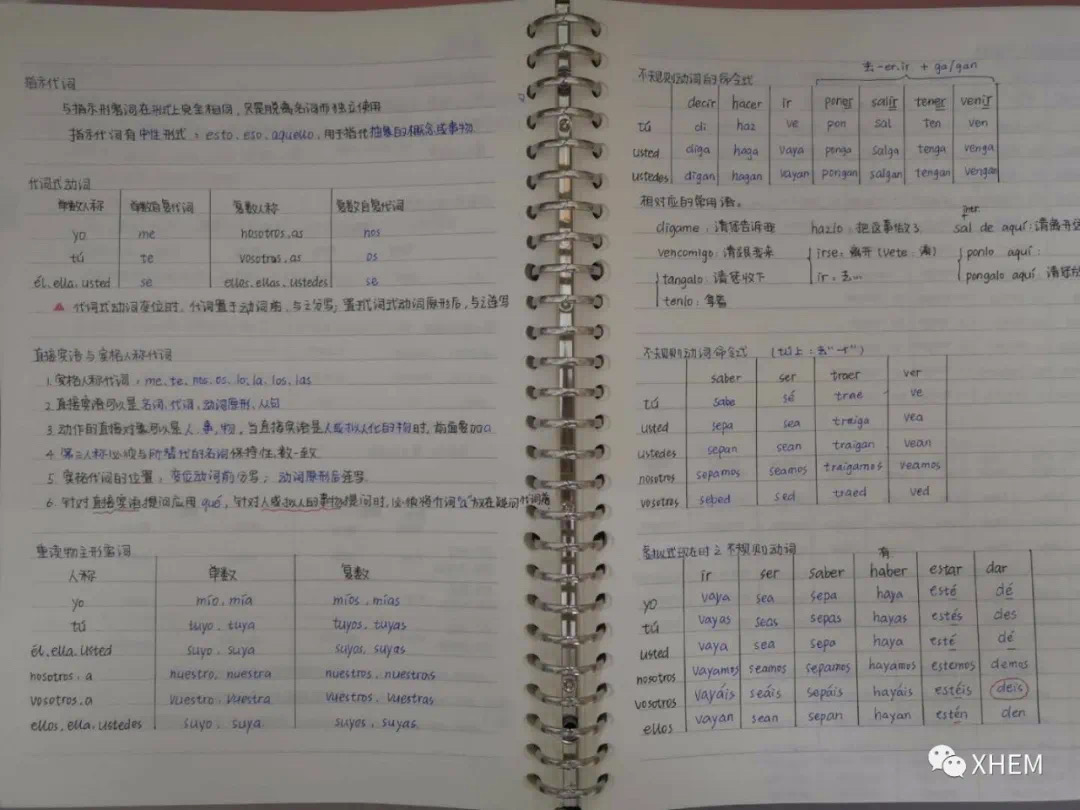 指示代词
与指示形容词在形式上完全相同，只是脱离名词而独立使用
指示代词有中性形式：esto、eso、aquello，用于指代抽象的概念或事物
代词式动词
单数人称 单数自复代词 复数人称 复数自复代词
yo me nosotros.as nos
tú te vosotros.as os
él.ella.usted se ellos.ellas.ustedes se
代词式动词变位时，代词置于动词前，与之分写；置于代词式动词原形后，与之连写
直接宾语与宾格人称代词
1. 宾格人称代词：me、te、nos、os、lo、la、los、las
2. 直接宾语可以是名词、代词、动词原形、从句
3. 动作的直接对象可以是人、事、物，当直接宾语是人或拟人化的物时，前面要加a
4. 第三人称必须与所替代的名词保持性、数一致
5. 宾格代词的位置：变位动词前分写；动词原形后连写.
6. 针对直接宾语提问应用qué，针对人或拟人的事物提问时，必须将介词"a"放在疑问代词前
重读物主形容词
人称 单数 复数
yo mío、mía míos、mías
tú tuyo、tuya tuyos、tuyas
él.ella.usted suyo、suya suyos、suyas
nosotros.a nuestro、nuestra nuestros、nuestras
vosotros.a vuestro、vuestra vuestros、vuestras
ellos.ella.ustedes suyo、suya suyos、suyas
去-er.ir + ga/gan
不规则动词的命令式
decir hacer ir poner salir tener venir
tú di haz ve pon sal ten ven
usted diga haga vaya ponga salga tenga venga
ustedes digan hagan vayan pongan salgan tengan vengan
相对应的常用语。
intr.
dígame：请您告诉我 hazlo：把这事做了 sal de aquí：请离开这
vencomigo：请跟我来 irse：离开(vete：滚) ponlo aquí：
tangalo：请您收下 ir：去… pongalo aquí：请您放
tenlo：拿着
不规则动词命令式 (tú上：去"-r")
saber ser traer ver
tú sabe sé trae ve
usted sepa sea traiga vea
ustedes sepan sean traigan vean
nosotros sepamos seamos traigamos veamos
vosotros sebed sed traed ved
虚拟式现在时之不规则动词
有
ir ser saber haber estar dar
yo vaya sea sepa haya esté dé
tú vayas seas sepas hayas estés des
usted vaya sea sepa haya esté dé
nosotros vayamos seamos sepamos hayamos estemos demos
vosotros vayáis seáis sepáis hayáis estéis deis
ellos vayan sean sepan hayan estén den
XHEM